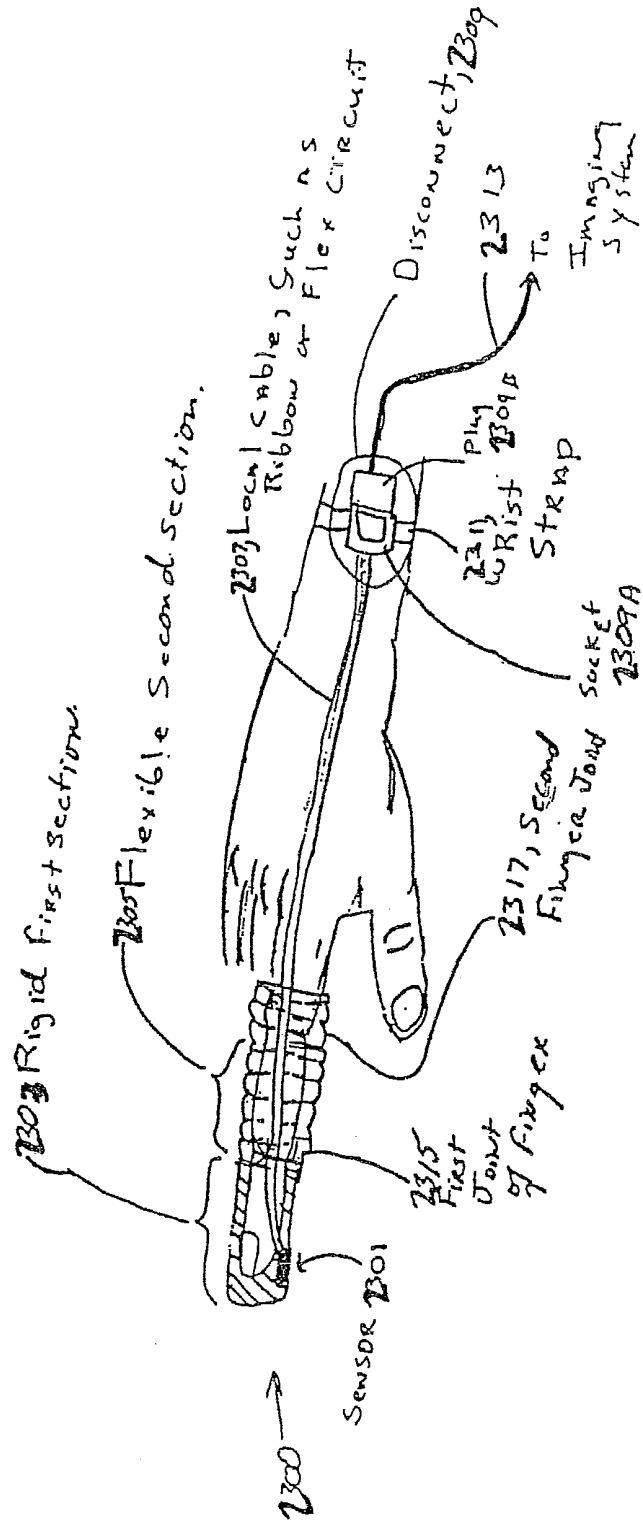 2303 Rigid First section.
2305 Flexible Second section.
2307, Local Cable, Such as
Ribbon or Flex Circuit
Disconnect, 2309
2313
To
Imaging
System
Plug
2309B
2311,
Wrist
Strap
Socket
2309A
2317, Second
Finger Joint
2315
First
Joint
of Finger
Sensor 2301
2300